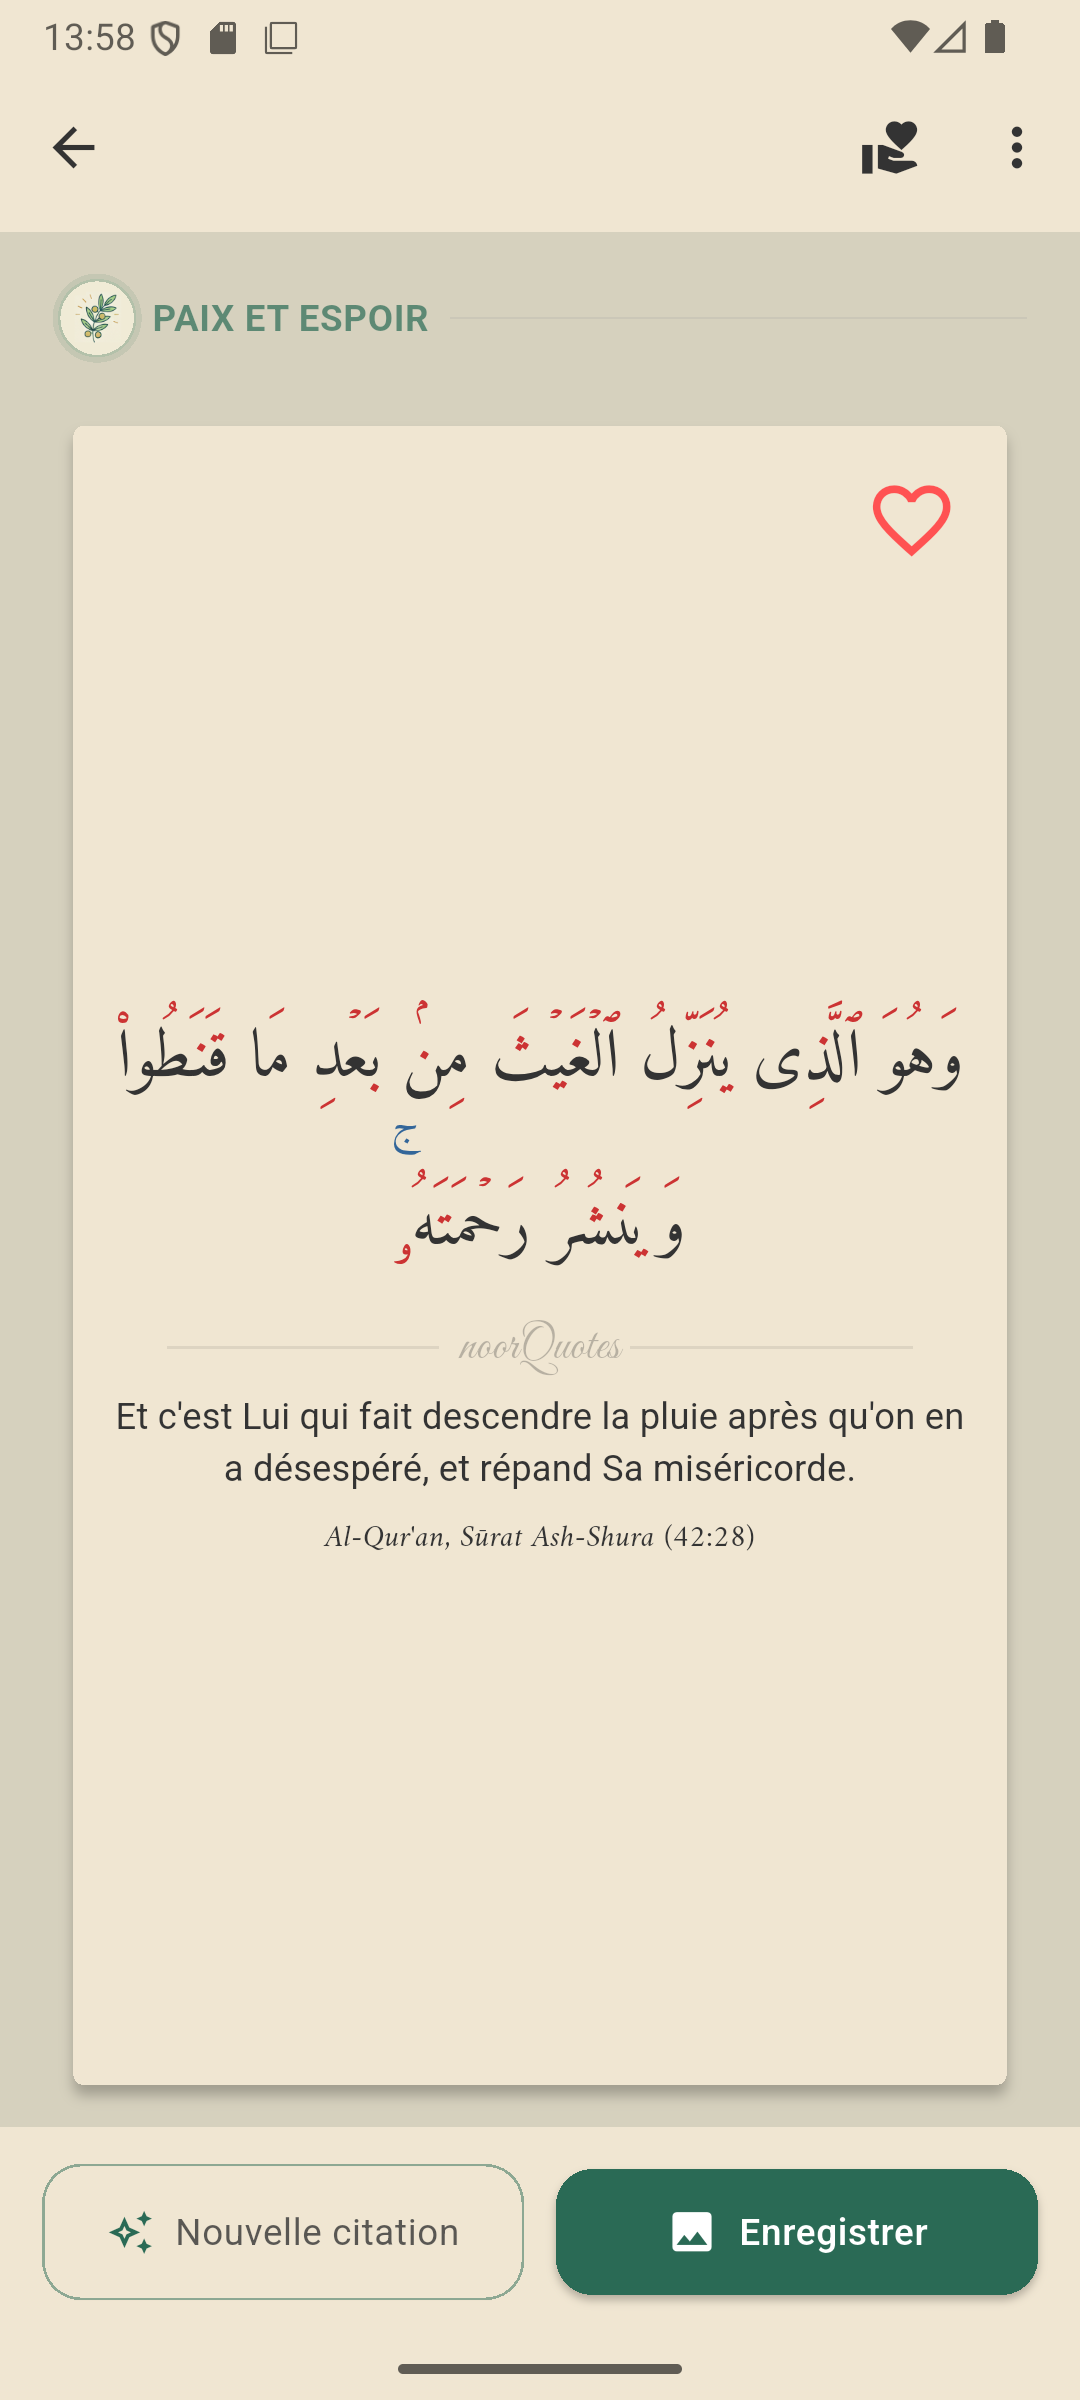 13:58
PAIX ET ESPOIR
وَهُوَ ٱلَّذِى يُنَزِّلُ ٱلْغَيْثَ مِنۢ بَعْدِ مَا قَنَطُوا۟
وَيَنشُرُ رَحْمَتَهُۥ ۚ
noorQuotes
Et c'est Lui qui fait descendre la pluie après qu'on en
a désespéré, et répand Sa miséricorde.
Al-Qur'an, Sūrat Ash-Shura (42:28)
Nouvelle citation
Enregistrer